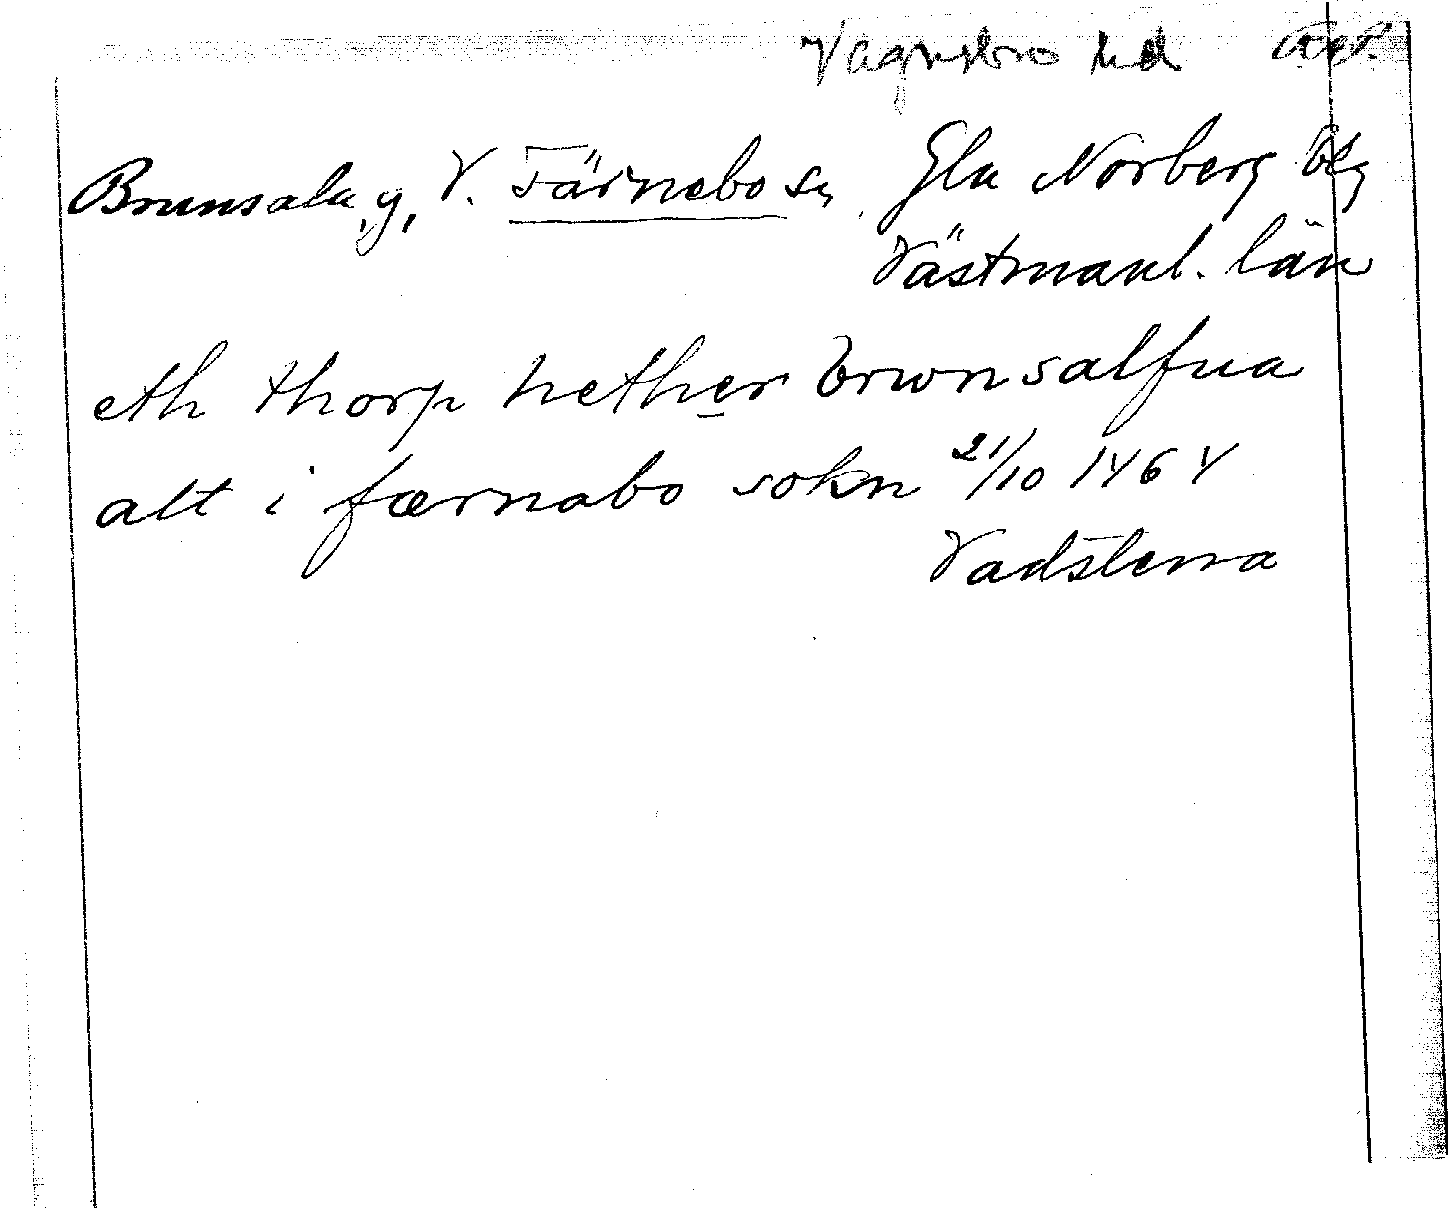 Vagnsbro hd Avt.
Brunsala, g, V. Färnebo sn, Gla Norberg blg
Västmanl. län
eth thorp nether brwnsalfua
alt i færnabo sokn 21/10 1464
Vadstena